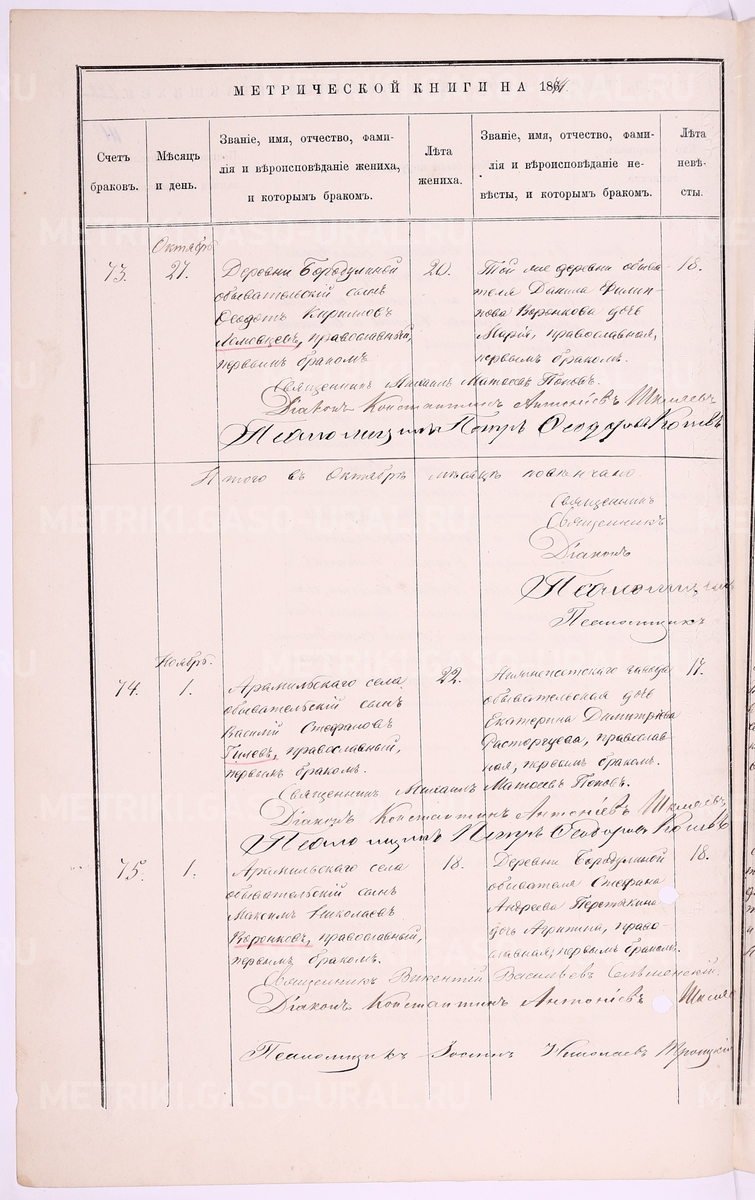 МЕТРИЧЕСКОЙ КНИГИ НА 18
Счетъ браковъ.
Мѣсяцъ и день.
Званіе, имя, отчество, фами-
лія и вѣроисповѣданіе жениха,
и которымъ бракомъ.
Лѣта жениха.
Званіе, имя, отчество, фами-
лія и вѣроисповѣданіе не-
вѣсты, и которымъ бракомъ.
Лѣта невѣ-
сты.
Октябрь
73.
27.
Деревни Бородулиной
обывательскій сынъ
Ѳеодотъ Кирилловъ
православный,
первымъ бракомъ
20.
Той же деревни обыва-
теля Данила Филип-
пова Воронкова дочь
Марія, православная,
первымъ бракомъ.
18.
Священникъ Михаилъ Матѳеевъ Поповъ.
Діаконъ Константинъ Антоніевъ Шкляевъ
Псаломщикъ Петръ Ѳеодоровъ
Итого въ Октябрѣ мѣсяцѣ повѣнчано
Священникъ
Священникъ
Діаконъ
Псаломщикъ
Псаломщикъ
Ноябрь.
74.
1.
Арамильскаго села
обывательскій сынъ
Василій Стефановъ
Гилевъ, православный,
первымъ бракомъ.
22.
Нижнеисетскаго завода
обывательская дочь
Екатерина Димитріева
Расторгуева, православ-
ная, первымъ бракомъ.
17.
Священникъ Михаилъ Матѳеевъ Поповъ.
Діаконъ Константинъ Антоніевъ Шкляевъ
Псаломщикъ Петръ Ѳеодоровъ
75.
1.
Арамильскаго села
обывательскій сынъ
Максимъ Николаевъ
Воронковъ, православный,
первымъ бракомъ.
18.
Деревни Бородулиной
обывателя Стефана
Андреева Перетякина
дочь Агрипина, право-
славная, первымъ бракомъ.
18.
Священникъ Викентій Васильевъ
Діаконъ Константинъ Антоніевъ
Псаломщикъ Зосимъ Николаевъ Троицкій
METRIKI.GASO-URAL.RU